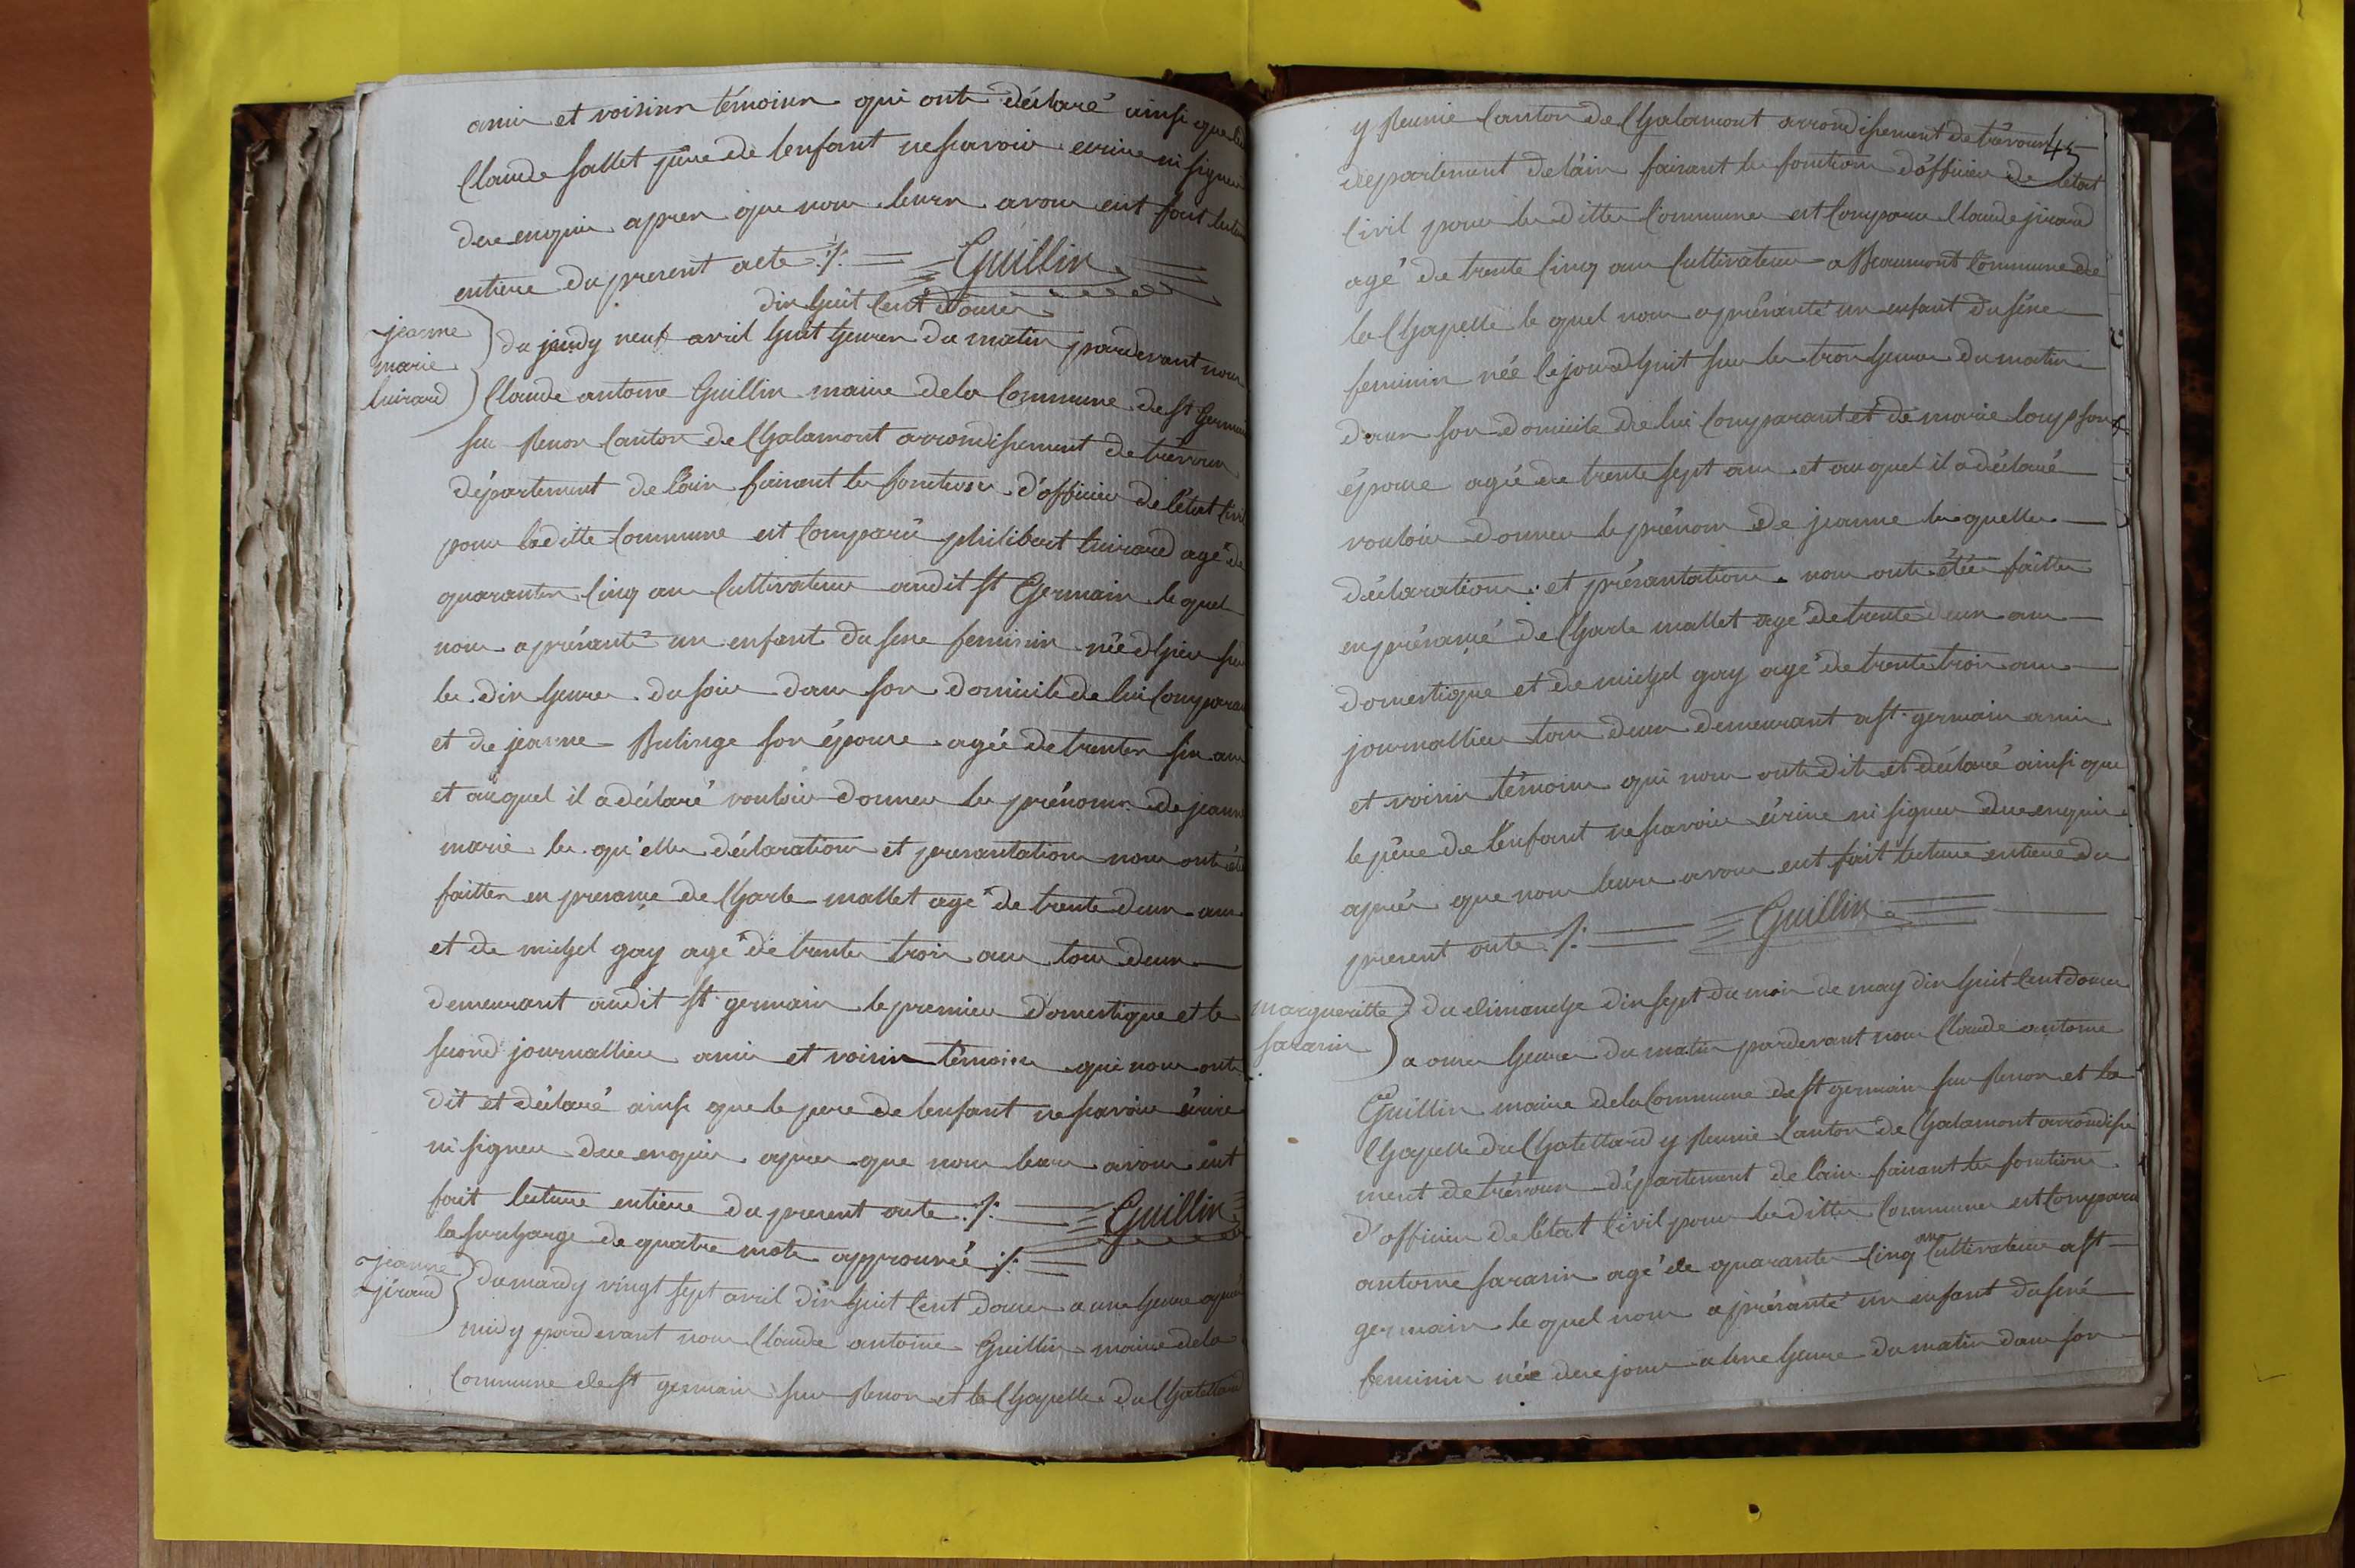 amis et voisins témoins qui ont déclaré ainsi que le
Claude Sallet pere de lenfant ne savoir ecrire ni signer
de ce enquis apres que nous leurs avons eut fait lecture
entiere du present acte ./. Guillin
dix huit cent douze
jeanne
marie
Cuirard
du jeudy neuf avril huit heures du matin pardevant nous
Claude antoine Guillin maire de la Commune de St Germain
sur Renon Canton de Chalamont arrondissement de trévoux
département de l'ain faisant les fonctions d'officier de l'état civil
pour laditte Commune est Comparû philibert Cuirard agé de
quarante Cinq ans Cultivateur audit St Germain le quel
nous a présanté un enfant du sexe feminin née d'hier sur
les dix heures du soir dans son domicile de lui Comparant
et de jeanne son épouse agée de trente six ans
et auquel il a déclaré vouloir donner les prénoms de jeanne
marie les qu'elles déclarations et presantations nous ont été
faittes en presance de Charle mallet agé de trente deux ans
et de michel gay agé de trente trois ans tous deux
demeurant audit St germain le premier domestique et le
second journallier amis et voisin témoins qui nous ont
dit et déclaré ainsi que le pere de lenfant ne savoir écrire
ni signer de ce enquis apres que nous leurs avons eut
fait lecture entiere du present acte ./. Guillin
la surcharge de quatre mots approuvée ./.
jeanne
jirard
du mardy vingt sept avril dix huit Cent douze a une heure après
midy pardevant nous Claude antoine Guillin maire de la
Commune de St germain sur Renon et la Chapelle du Chatellard
45
y Reunie Canton de Chalamont arrondissement de trévoux
departement de l'ain faisant les fonctions d'officier de l'état
Civil pour les dittes Communes est Comparu Claude jirard
agé de trente Cinq ans Cultivateur a Beaumont Commune de
la Chapelle le quel nous a présanté un enfant du sexe
feminin née lejourd'huit sur les trois heures du matin
dans son domicile de lui Comparant et de marie loup son
épouse agée de trente sept ans et au quel il a déclaré
vouloir donner le prénom de jeanne les quelles
déclarations et présantations nous ont étée faittes
en présance de Charle mallet agé de trente deux ans
domestique et de michel gay agé de trente trois ans
journallier tous deux demeurant a St germain amis
et voisin témoins qui nous ont dit et déclaré ainsi que
le pére de l'enfant ne savoir écrire ni signer de ce enquis
aprés que nous leurs avons eut fait lecture entiere du
present acte ./. Guillin
margueritte
sarasin
du dimanche dix sept du mois de may dix huit Cent douze
a onze heures du matin pardevant nous Claude antoine
Guillin maire de la Commune de St germain sur Renon et la
Chapelle du Chatellard y Reunie Canton de Chalamont arrondisse
ment de trévoux département de l'ain faisant les fonctions
d'officier de l'état Civil pour les dittes Communes est Comparu
antoine sarasin agé de quarante Cinq ans Cultivateur a St
germain le quel nous a présanté un enfant du sexe
feminin née de ce jour a une heure du matin dans son